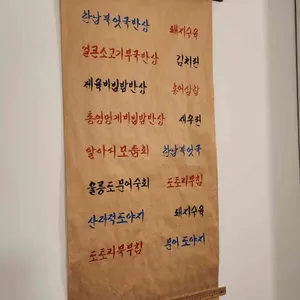 한남북엇국반상
돼지수육
얼큰소고기무국반상
김치전
제육비빔밥반상
홍어삼합
통영멍게비빔밥반상
새우전
알아서모둠회
한남북엇국
울릉도문어숙회
도토리부침
산더적도야지
돼지수육
도토리묵부침
문어도야지